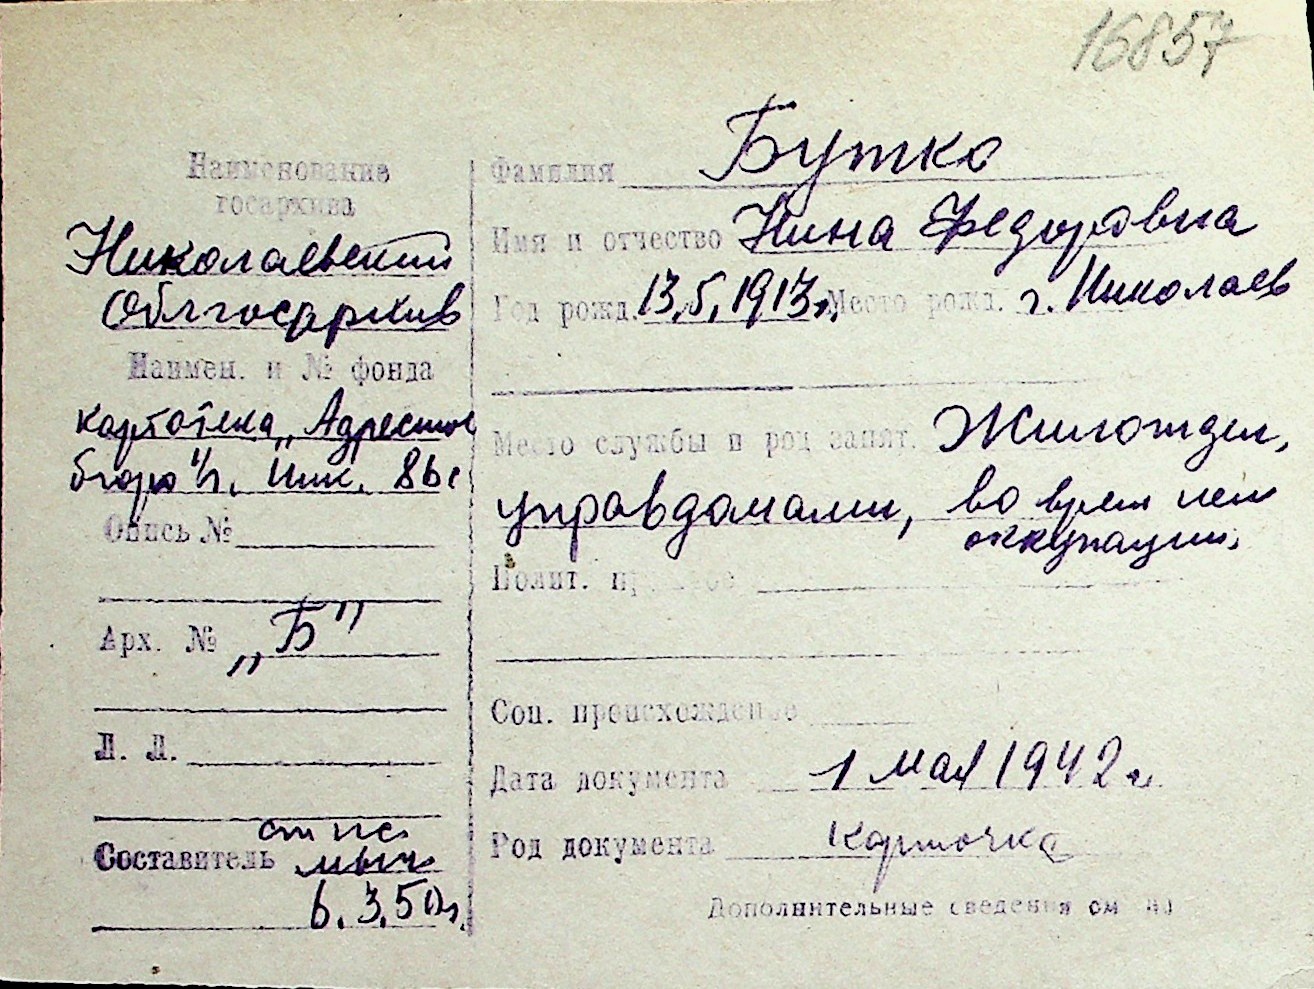 16857
Наименование
госархива
Николаевский
Облгосархив
Наимен. и № фонда
картотека „Адресное
бюро" г. Ник.
Опись №
Арх. № „Б"
Л. Л.
Составитель
6.3.50г.
Фамилия Бутко
Имя и отчество Нина Федоровна
Год рожд. 13.5.1913г. Место рожд. г. Николаев
Место службы и род занят. Жилотдел,
управдомами, во время нем
оккупации.
Полит.
Соц. происхождение
Дата документа 1 мая 1942 г.
Род документа карточка
Дополнительные сведения см на